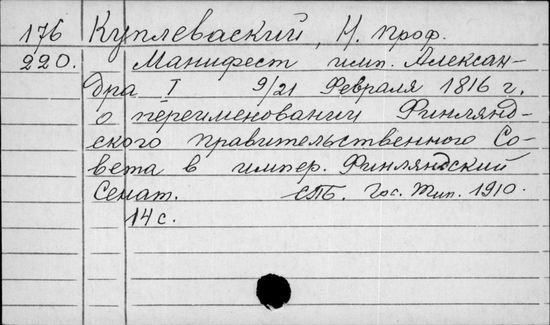 176 Куплеваский, Н. проф.
220. Манифест имп. Алексан-
дра I 9/21 Февраля 1816 г.
о переименовании Финлянд-
ского правительственного Со-
вета в импер. Финляндский
Сенат. СПБ. Гос. Тип. 1910.
14 с.